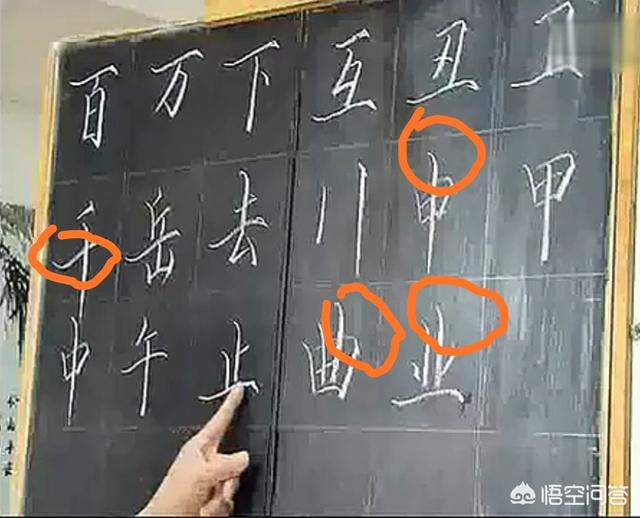 百万下互丑
千岳去申甲
中午止曲业
悟空问答